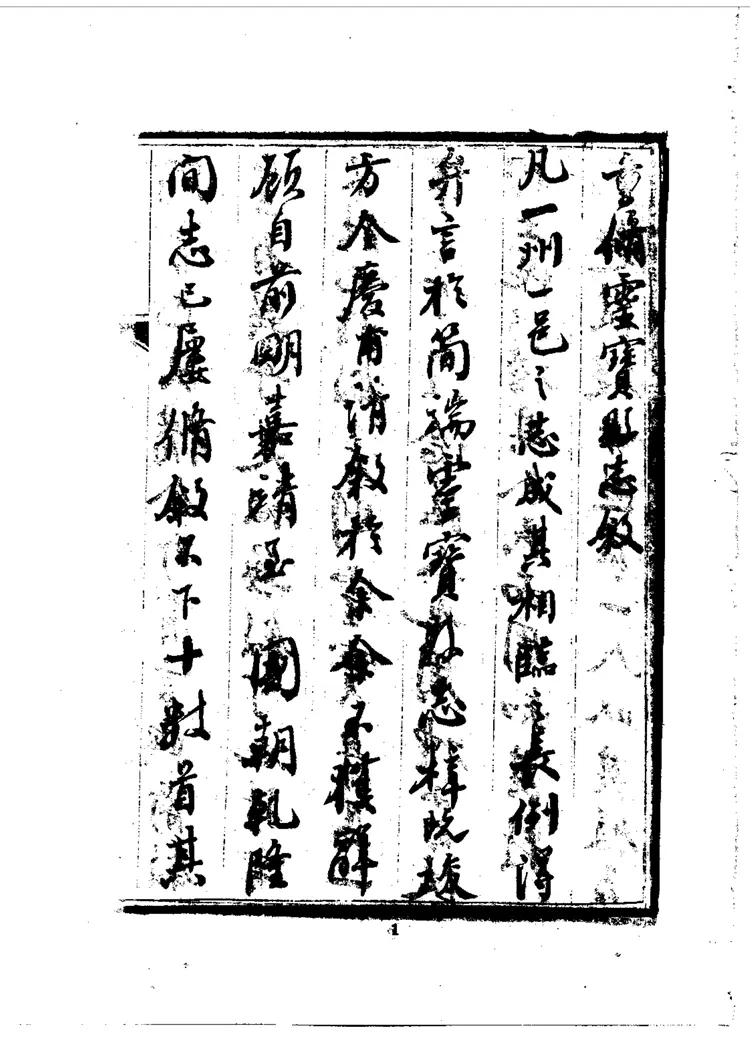 重脩靈寶縣志敘
凡一州一邑之志成其相臨之長例得
弁言於簡端靈寶縣志梓既竣
方令慶甫請敘於余余不獲辭
顧自前明嘉靖至國朝乾隆
間志已屢脩敘不下十數首其
1